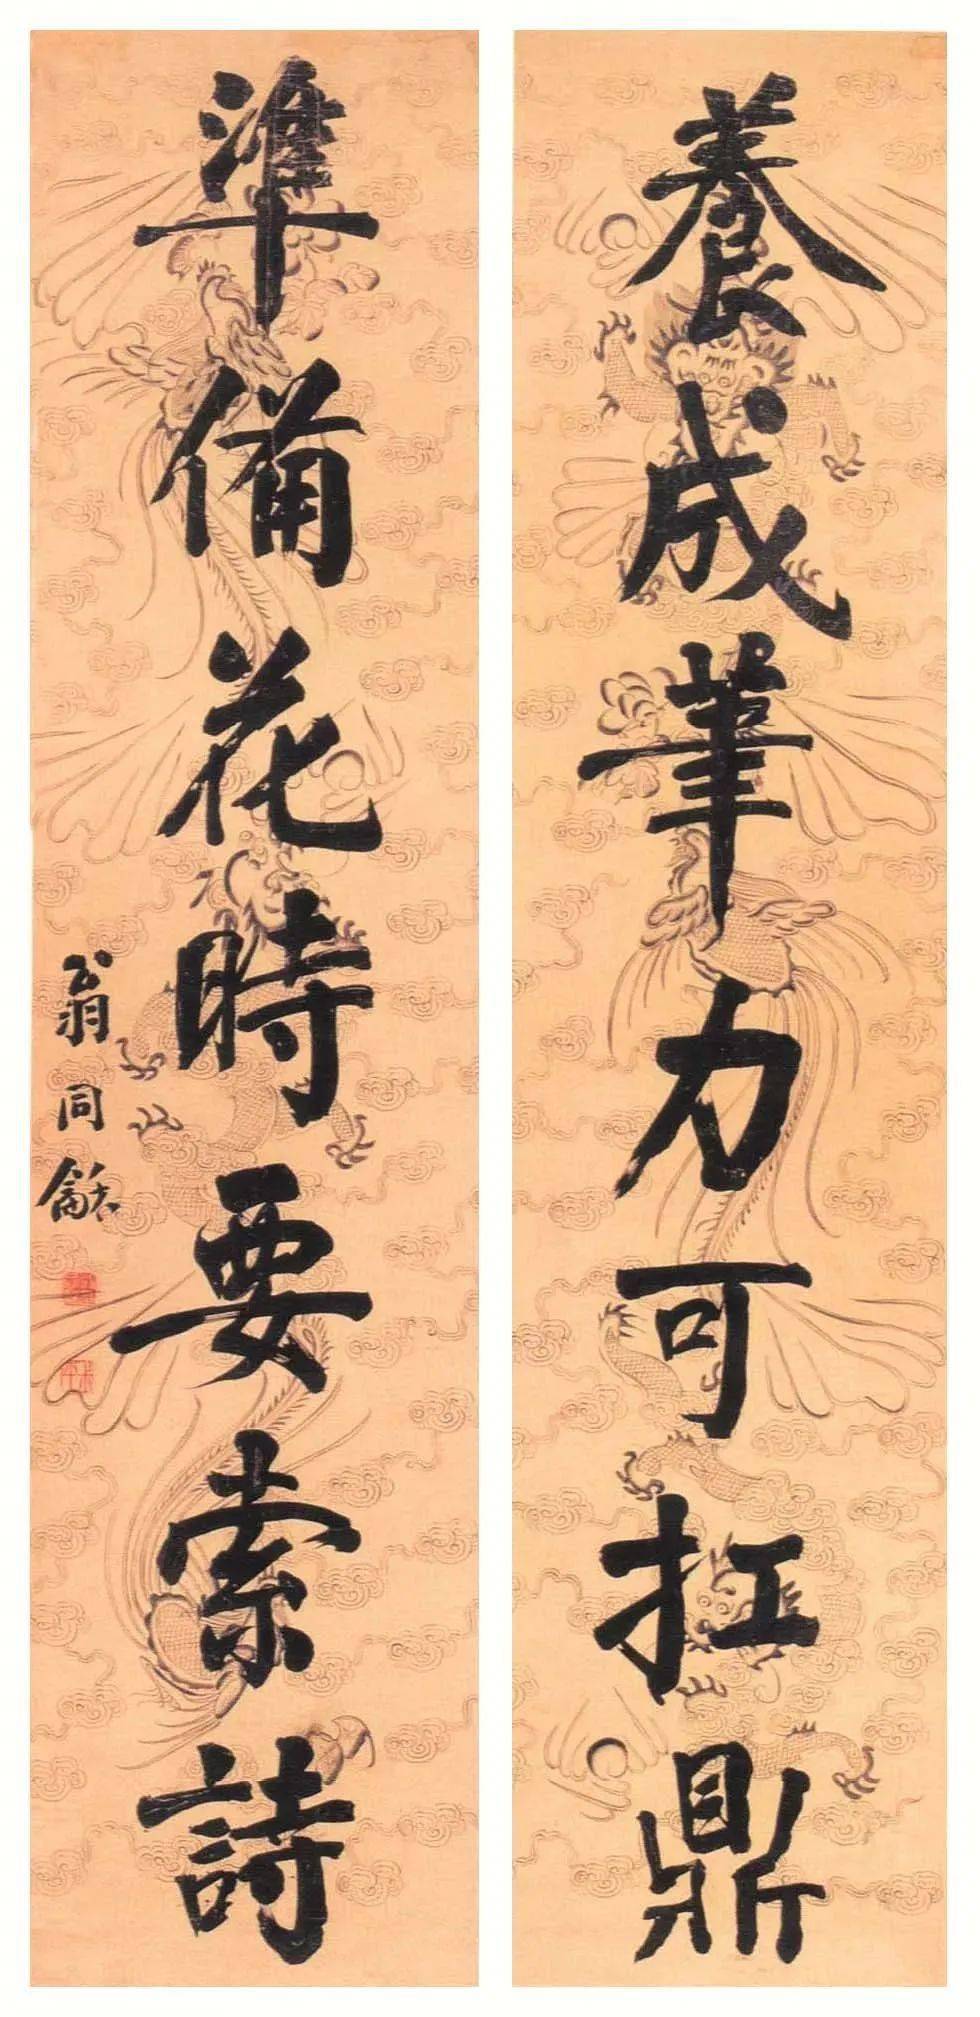 養成筆力可扛鼎
準備花時要索詩
翁同龢